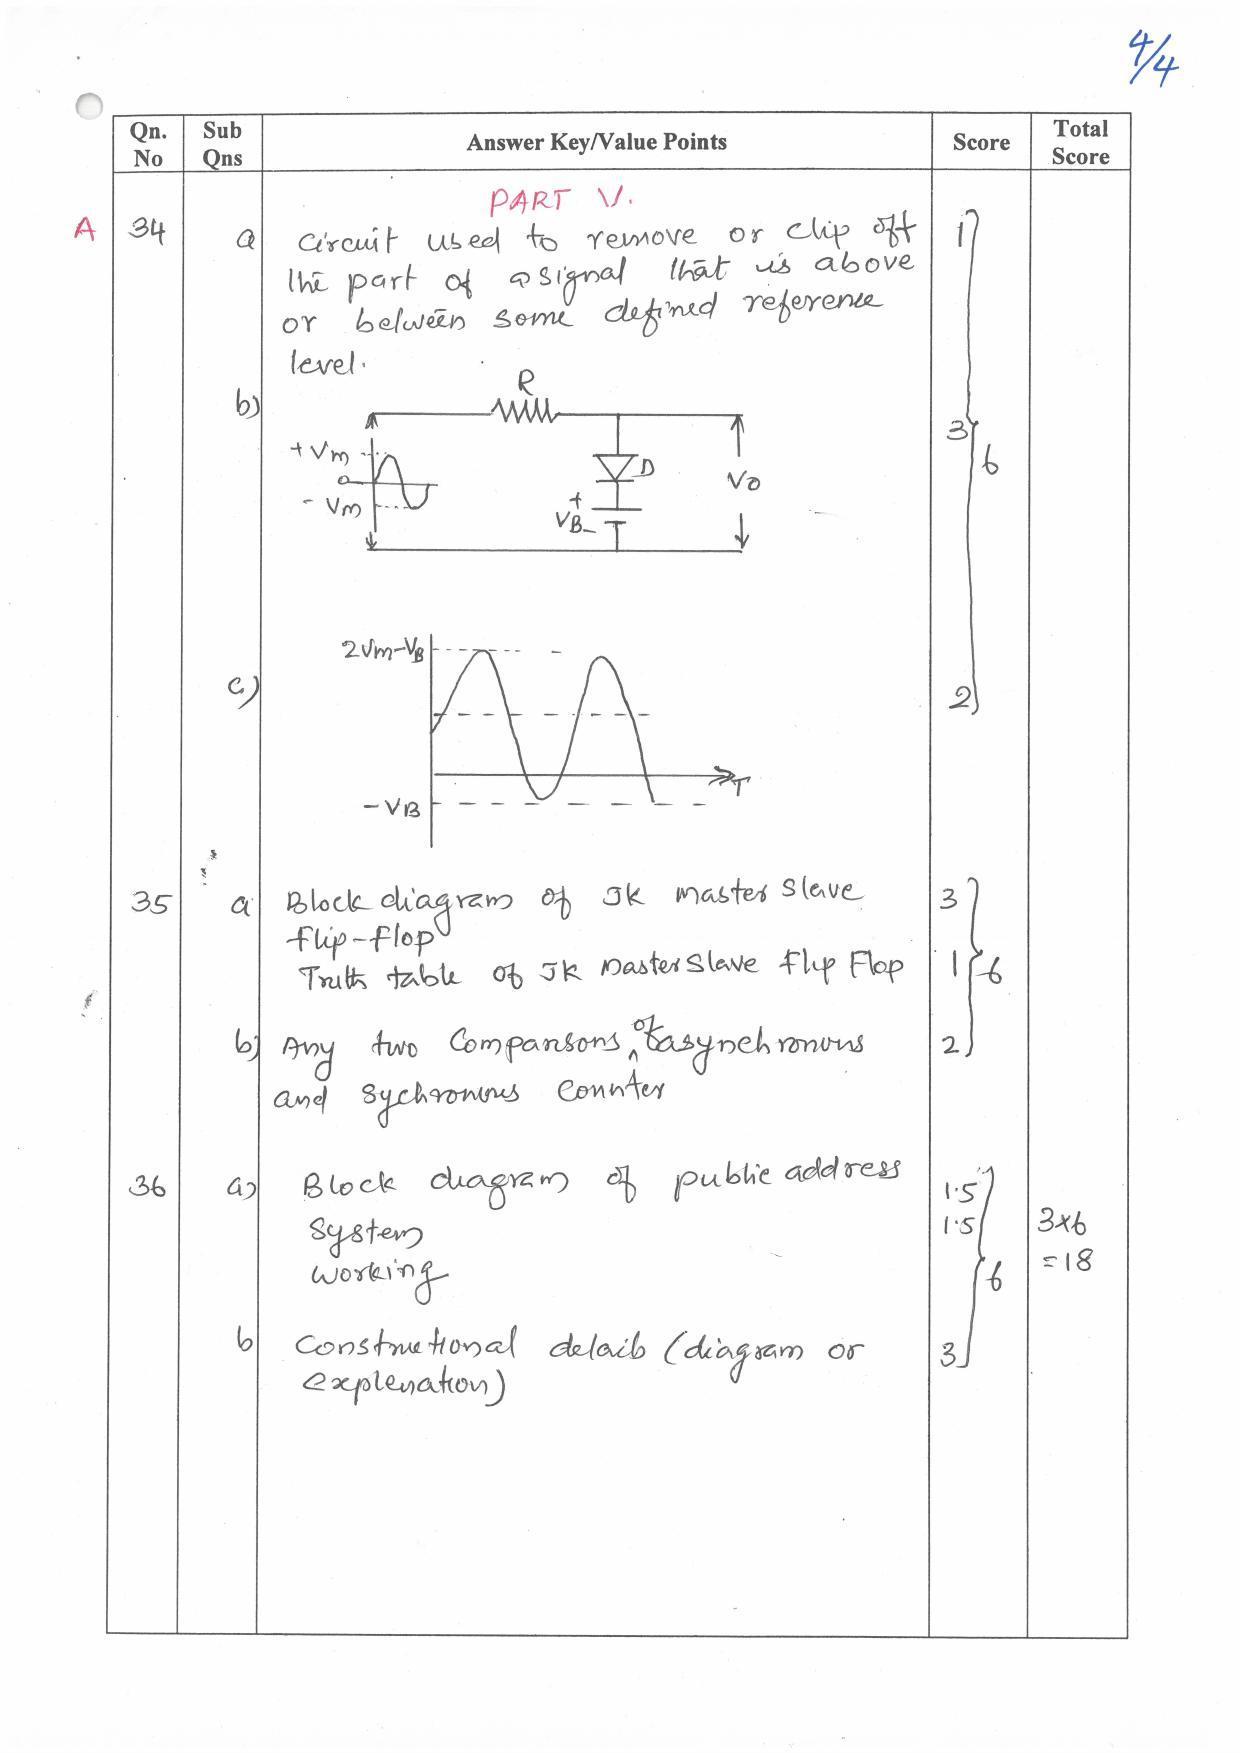 4/4
Qn. No
Sub Qns
Answer Key/Value Points
Score
Total Score
PART V.
A 34 a circuit used to remove or clip off 1
the part of a signal that is above
or between some defined reference
level.
b) R 3 6
+Vm
0
-Vm
D
+
VB-
Vo
c) 2Vm-VB 2
T
-VB
35 a Block diagram of JK master slave 3
flip-flop
Truth table of JK master slave flip Flop 1 6
b) Any two comparisons of asynchronous 2
and sychronous counter
36 a) Block diagram of public address 1.5
system 1.5 3x6
working 6 =18
b Constructional details (diagram or 3
explenation)